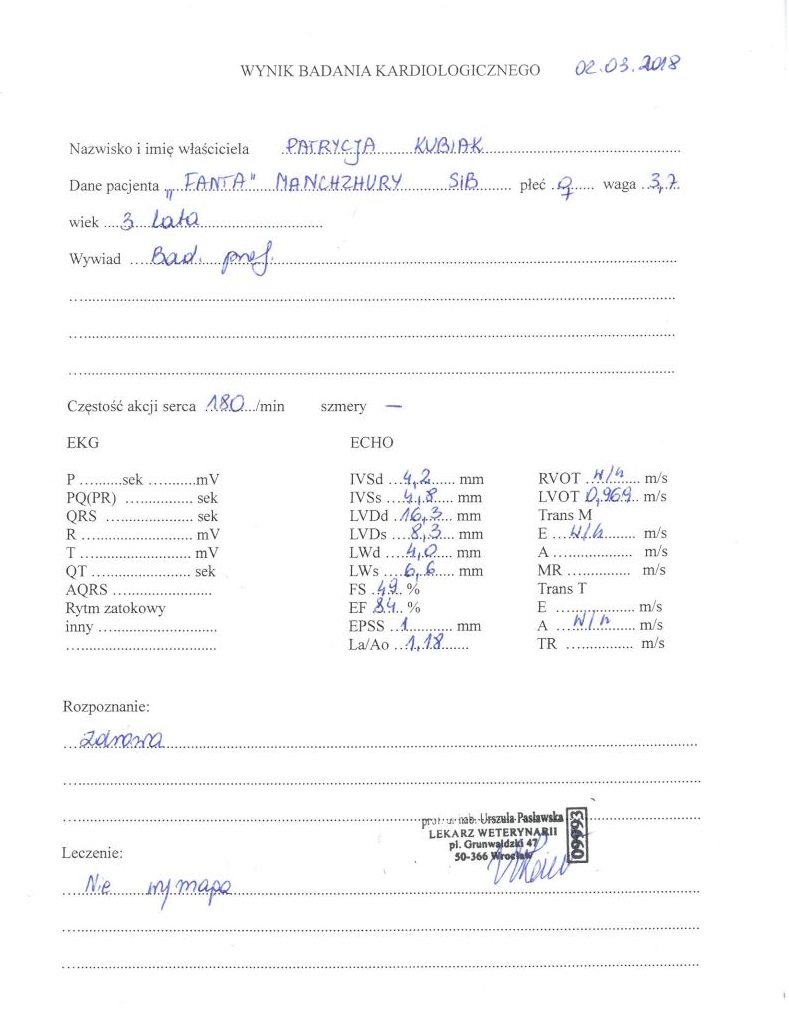 WYNIK BADANIA KARDIOLOGICZNEGO 02.03.2018
Nazwisko i imię właściciela PATRYCJA KUBIAK
Dane pacjenta „FANTA" MANCHZHURY SIB płeć ♀ waga 3,7
wiek 3 lata
Wywiad Bad. prof.
Częstość akcji serca 180 /min szmery —
EKG
P ..........sek ...........mV
PQ(PR) ................. sek
QRS ..................... sek
R ......................... mV
T ......................... mV
QT ....................... sek
AQRS ........................
Rytm zatokowy
inny .............................
ECHO
IVSd 4,2 mm
IVSs 4,8 mm
LVDd 16,3 mm
LVDs 8,3 mm
LWd 4,0 mm
LWs 6,6 mm
FS 49 %
EF 84 %
EPSS 1 mm
La/Ao 1,18
RVOT w/n m/s
LVOT 0,969 m/s
Trans M
E w/n m/s
A ................... m/s
MR ................ m/s
Trans T
E ................... m/s
A w/n m/s
TR ................. m/s
Rozpoznanie:
zdrowa
prof. dr hab. Urszula Pasławska
LEKARZ WETERYNARII
pl. Grunwaldzki 47
50-366 Wrocław
09993
Leczenie:
Nie wymaga